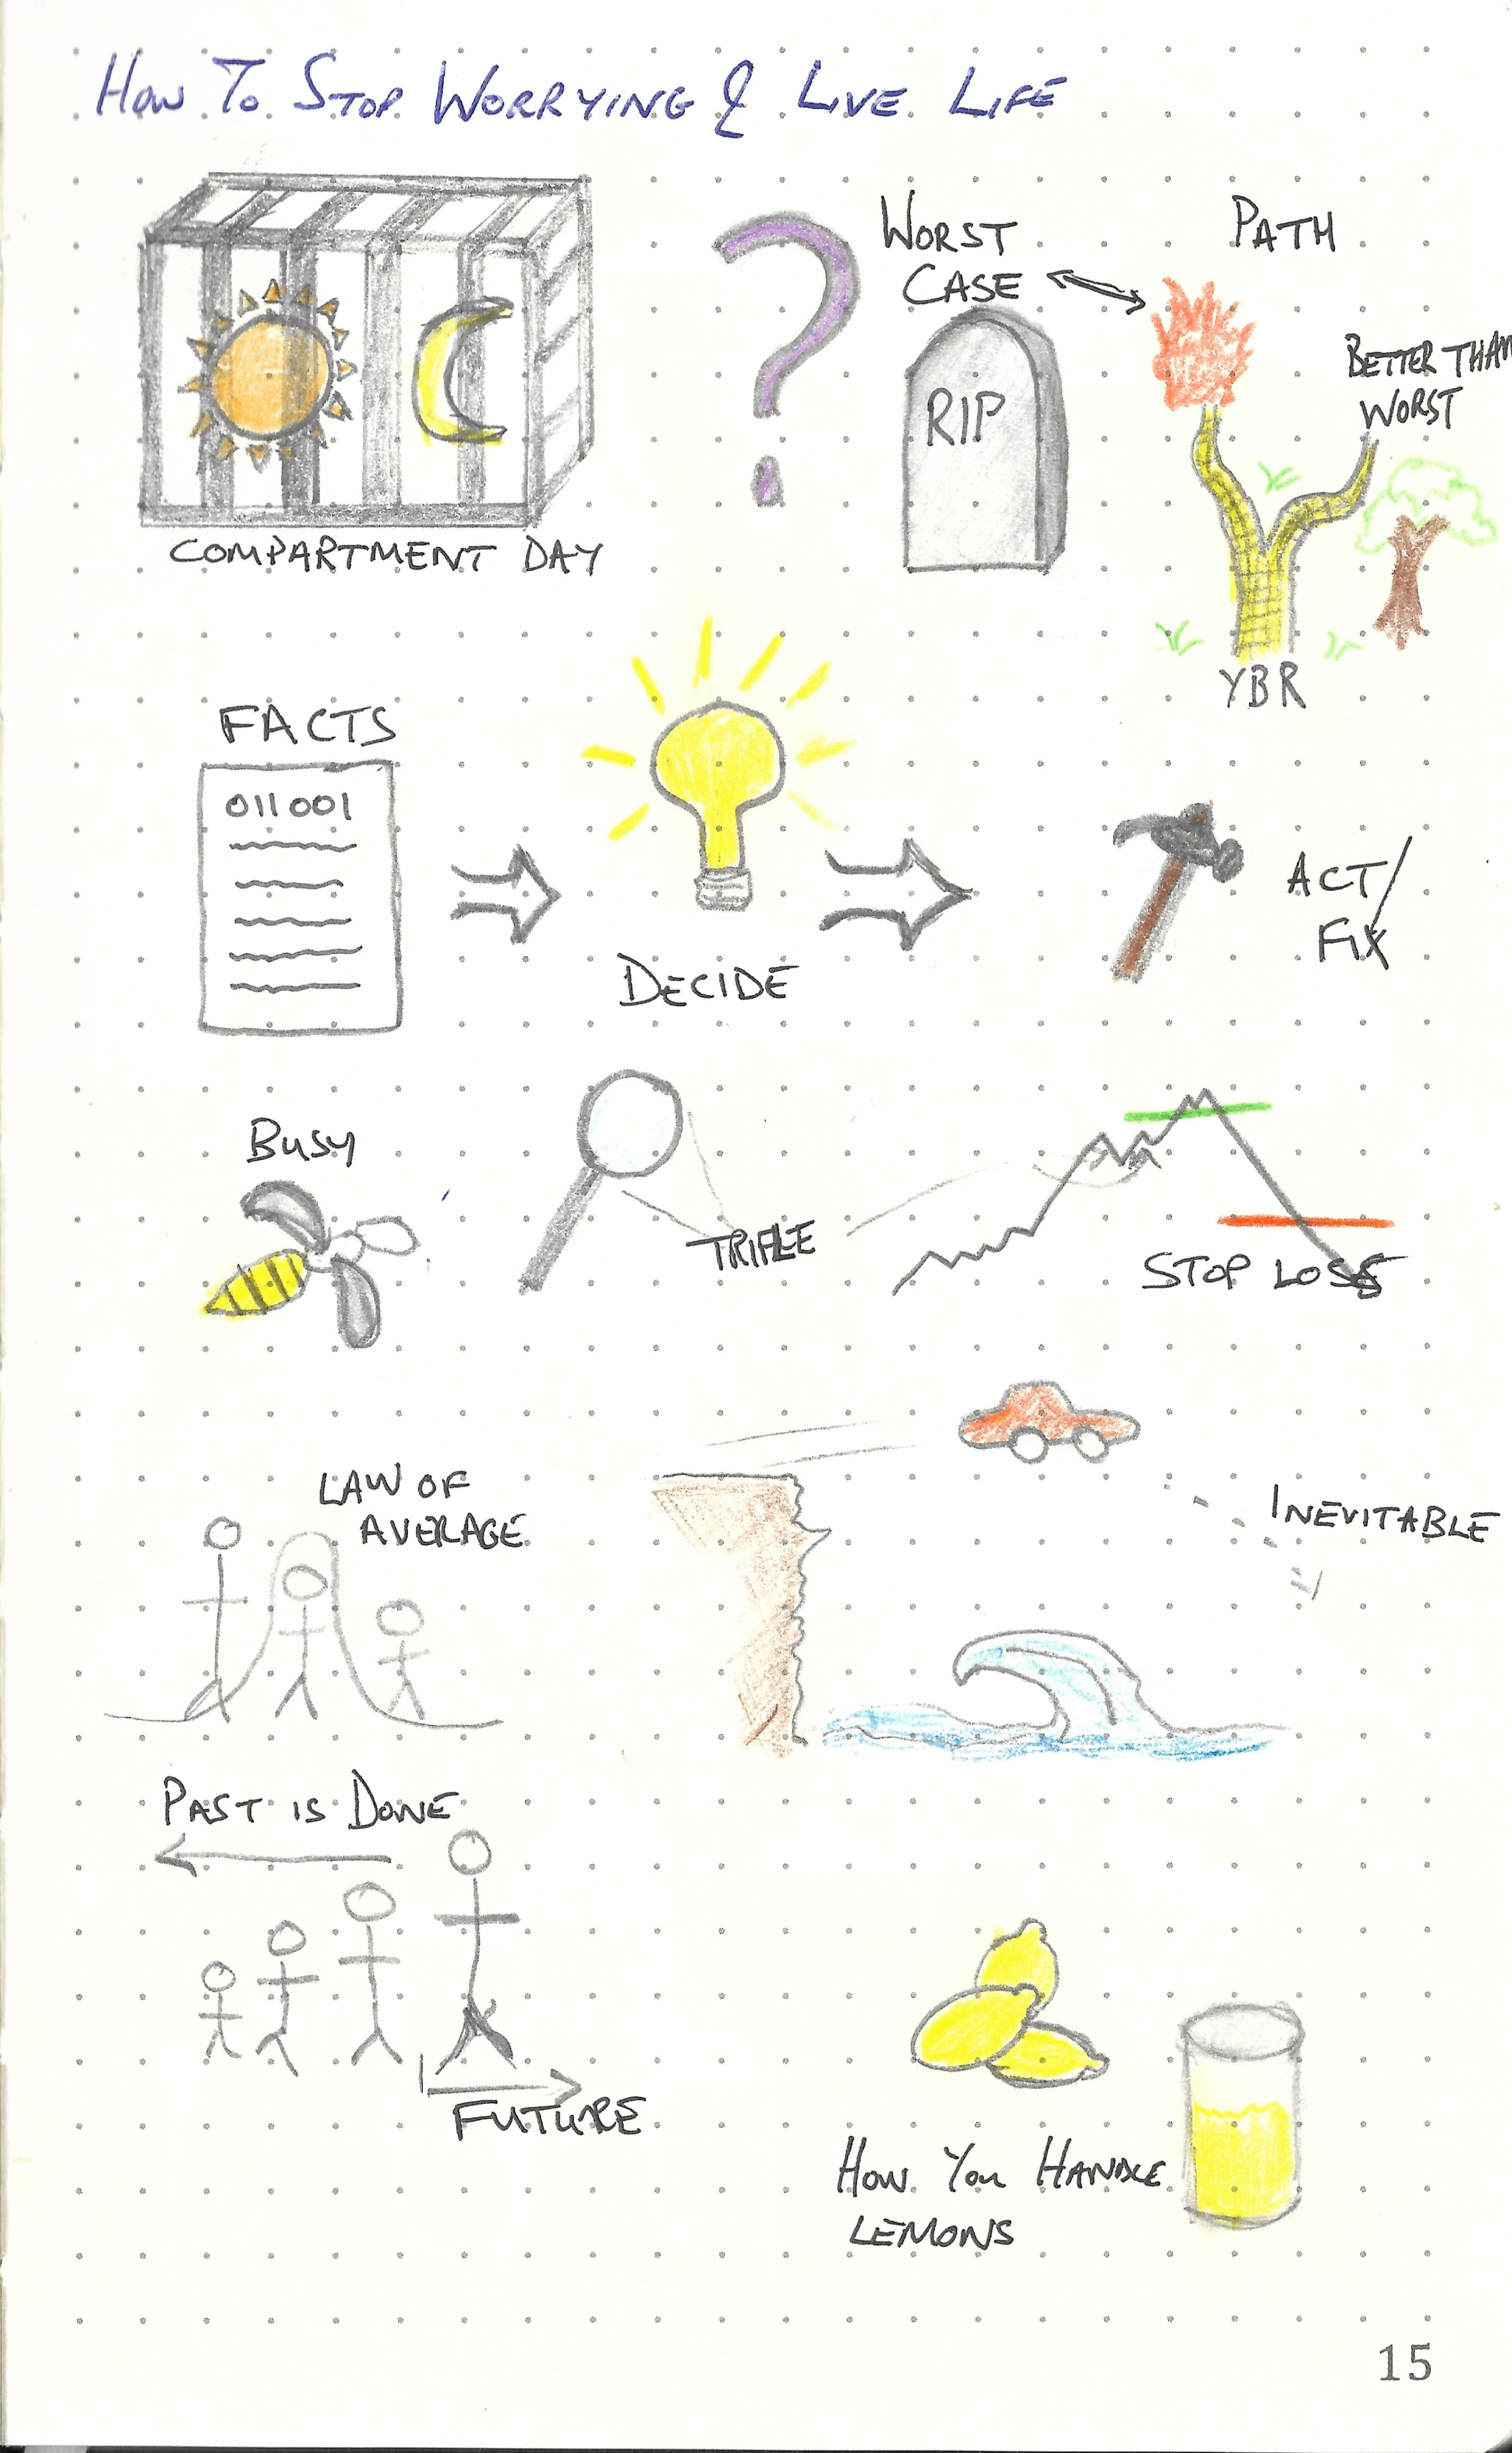 How To Stop Worrying & Live Life
Worst
Case
Path
Better Than
Worst
RIP
Compartment Day
YBR
Facts
011001
Decide
Act/
Fix
Busy
Trifle
Stop Loss
Law of
Average
Inevitable
Past is Done
Future
How You Handle
Lemons
15